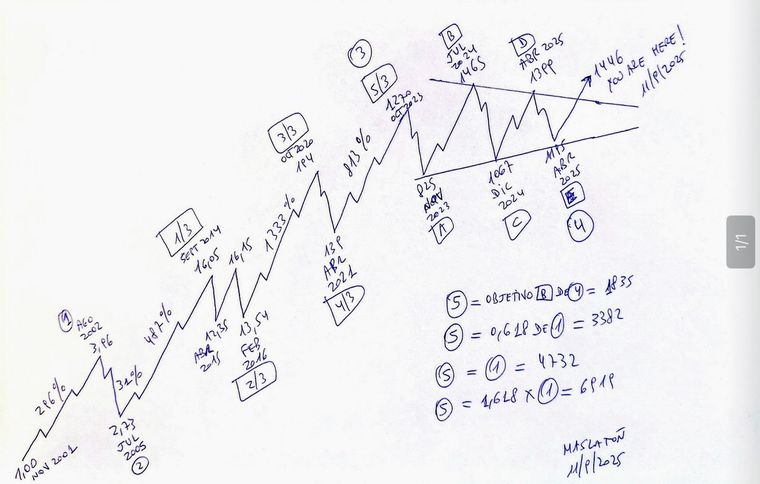 1,00
NOV 2001
296%
1
AGO
2002
3,96
31%
2,73
JUL
2005
2
487%
1/3
SEPT 2014
16,05
12,35
ABR
2015
16,15
13,54
FEB
2016
2/3
1333%
3/3
OCT 2020
194
139
ABR
2021
4/3
813%
3
5/3
1270
OCT 2023
825
NOV
2023
A
B
JUL
2024
1465
1067
DIC
2024
C
D
ABR 2025
1399
1195
ABR
2025
E
4
1446
YOU ARE HERE!
11/9/2025
5 = OBJETIVO B DE 4 = 1835
5 = 0,618 DE 1 = 3382
5 = 1 = 4732
5 = 1,618 X 1 = 6919
MASLATON
11/9/2025
1/1